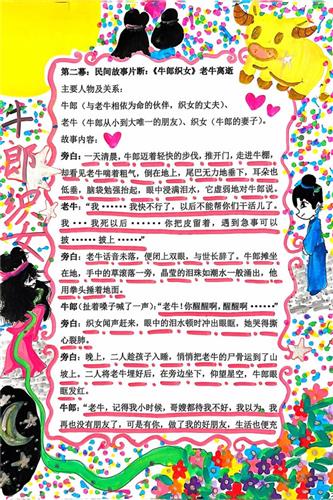 牛郎织女
第二幕:民间故事片断:《牛郎织女》老牛离逝
主要人物及关系:
牛郎(与老牛相依为命的伙伴,织女的丈夫)、
老牛(牛郎从小到大唯一的朋友)、织女(牛郎的妻子)。
故事内容:
旁白:一天清晨,牛郎迈着轻快的步伐,推开门,走进牛棚,
却看见老牛喘着粗气,倒在地上,尾巴无力地垂下,耳朵也
低垂,脑袋勉强抬起,眼中浸满泪水,它虚弱地对牛郎说。
老牛:"我······我快不行了,以后不能帮你们干活儿了。
我······我死以后······你把皮留着,遇到急事可以
披······披上······"
旁白:老牛话音未落,便闭上双眼,与世长辞了。牛郎摊坐
在地,手中的草滚落一旁,晶莹的泪珠如潮水一般涌出,他
用拳头捶着地面。
牛郎(扯着嗓子喊了一声):"老牛!你醒醒啊,醒醒啊······
旁白:织女闻声赶来,眼中的泪水顿时冲出眼眶,她哭得撕
心裂肺。
旁白:晚上,二人趁孩子入睡,悄悄把老牛的尸骨运到了山
坡上。二人将老牛埋好后,在旁边坐下,仰望星空,牛郎眼
眶发红。
牛郎:"老牛,记得我小时候,哥嫂都待我不好,我以为,我
再也没有朋友了,可是有你,做了我的好朋友,生活也便充